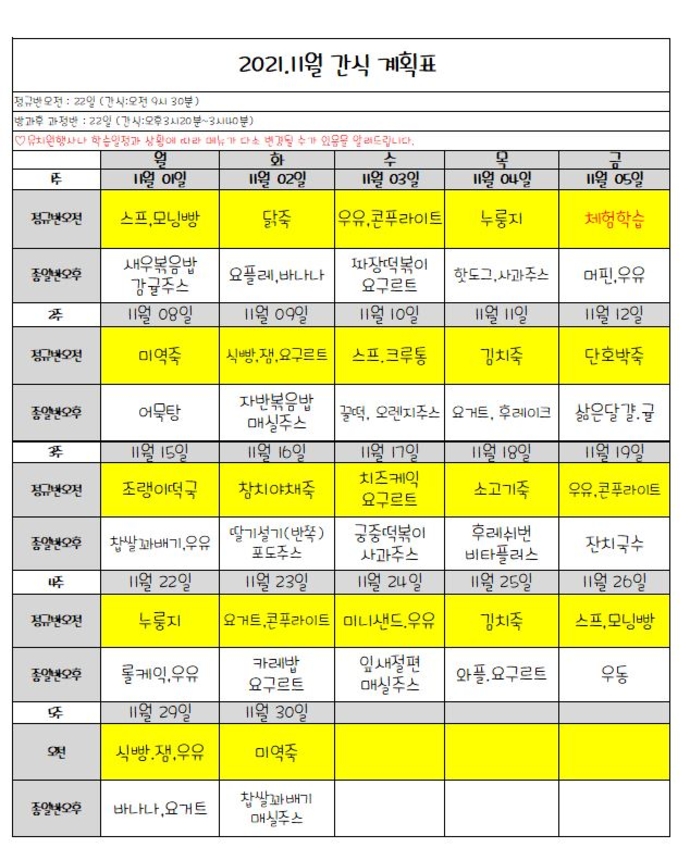 2021.11월 간식 계획표
정규반오전 : 22일 (간식:오전 9시 30분)
방과후 과정반 : 22일 (간식:오후3시20분~3시40분)
♡유치원행사나 학습일정과 상황에 따라 메뉴가 다소 변경될 수가 있음을 알려드립니다.
월 화 수 목 금
1주 11월 01일 11월 02일 11월 03일 11월 04일 11월 05일
정규반오전 스프,모닝빵 닭죽 우유,콘푸라이트 누룽지 체험학습
종일반오후 새우볶음밥 감귤주스 요플레,바나나 짜장떡볶이 요구르트 핫도그,사과주스 머핀,우유
2주 11월 08일 11월 09일 11월 10일 11월 11일 11월 12일
정규반오전 미역죽 식빵,잼,요구르트 스프.크루통 김치죽 단호박죽
종일반오후 어묵탕 자반볶음밥 매실주스 꿀떡, 오렌지주스 요거트, 후레이크 삶은달걀.귤
3주 11월 15일 11월 16일 11월 17일 11월 18일 11월 19일
정규반오전 조랭이떡국 참치야채죽 치즈케익 요구르트 소고기죽 우유,콘푸라이트
종일반오후 찹쌀꽈배기,우유 딸기설기(반쪽) 포도주스 궁중떡볶이 사과주스 후레쉬번 비타플러스 잔치국수
4주 11월 22일 11월 23일 11월 24일 11월 25일 11월 26일
정규반오전 누룽지 요거트,콘푸라이트 미니샌드.우유 김치죽 스프,모닝빵
종일반오후 롤케익,우유 카레밥 요구르트 잎새절편 매실주스 와플.요구르트 우동
5주 11월 29일 11월 30일
오전 식빵.잼,우유 미역죽
종일반오후 바나나,요거트 찹쌀꽈배기 매실주스